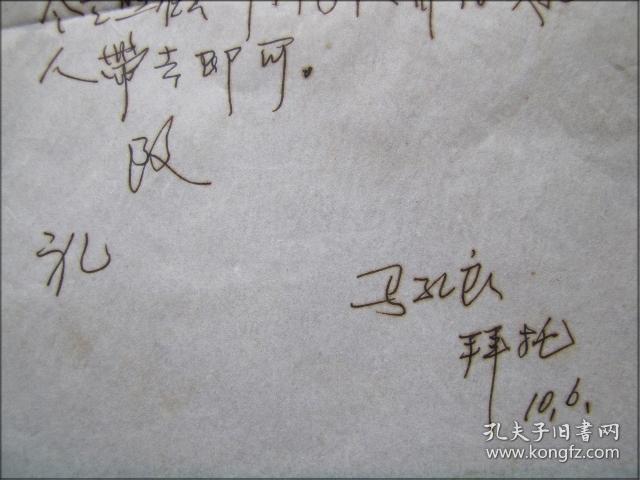 人带去即可。
礼
马孔良
拜托
10.6.
孔夫子旧書网
www.kongfz.com